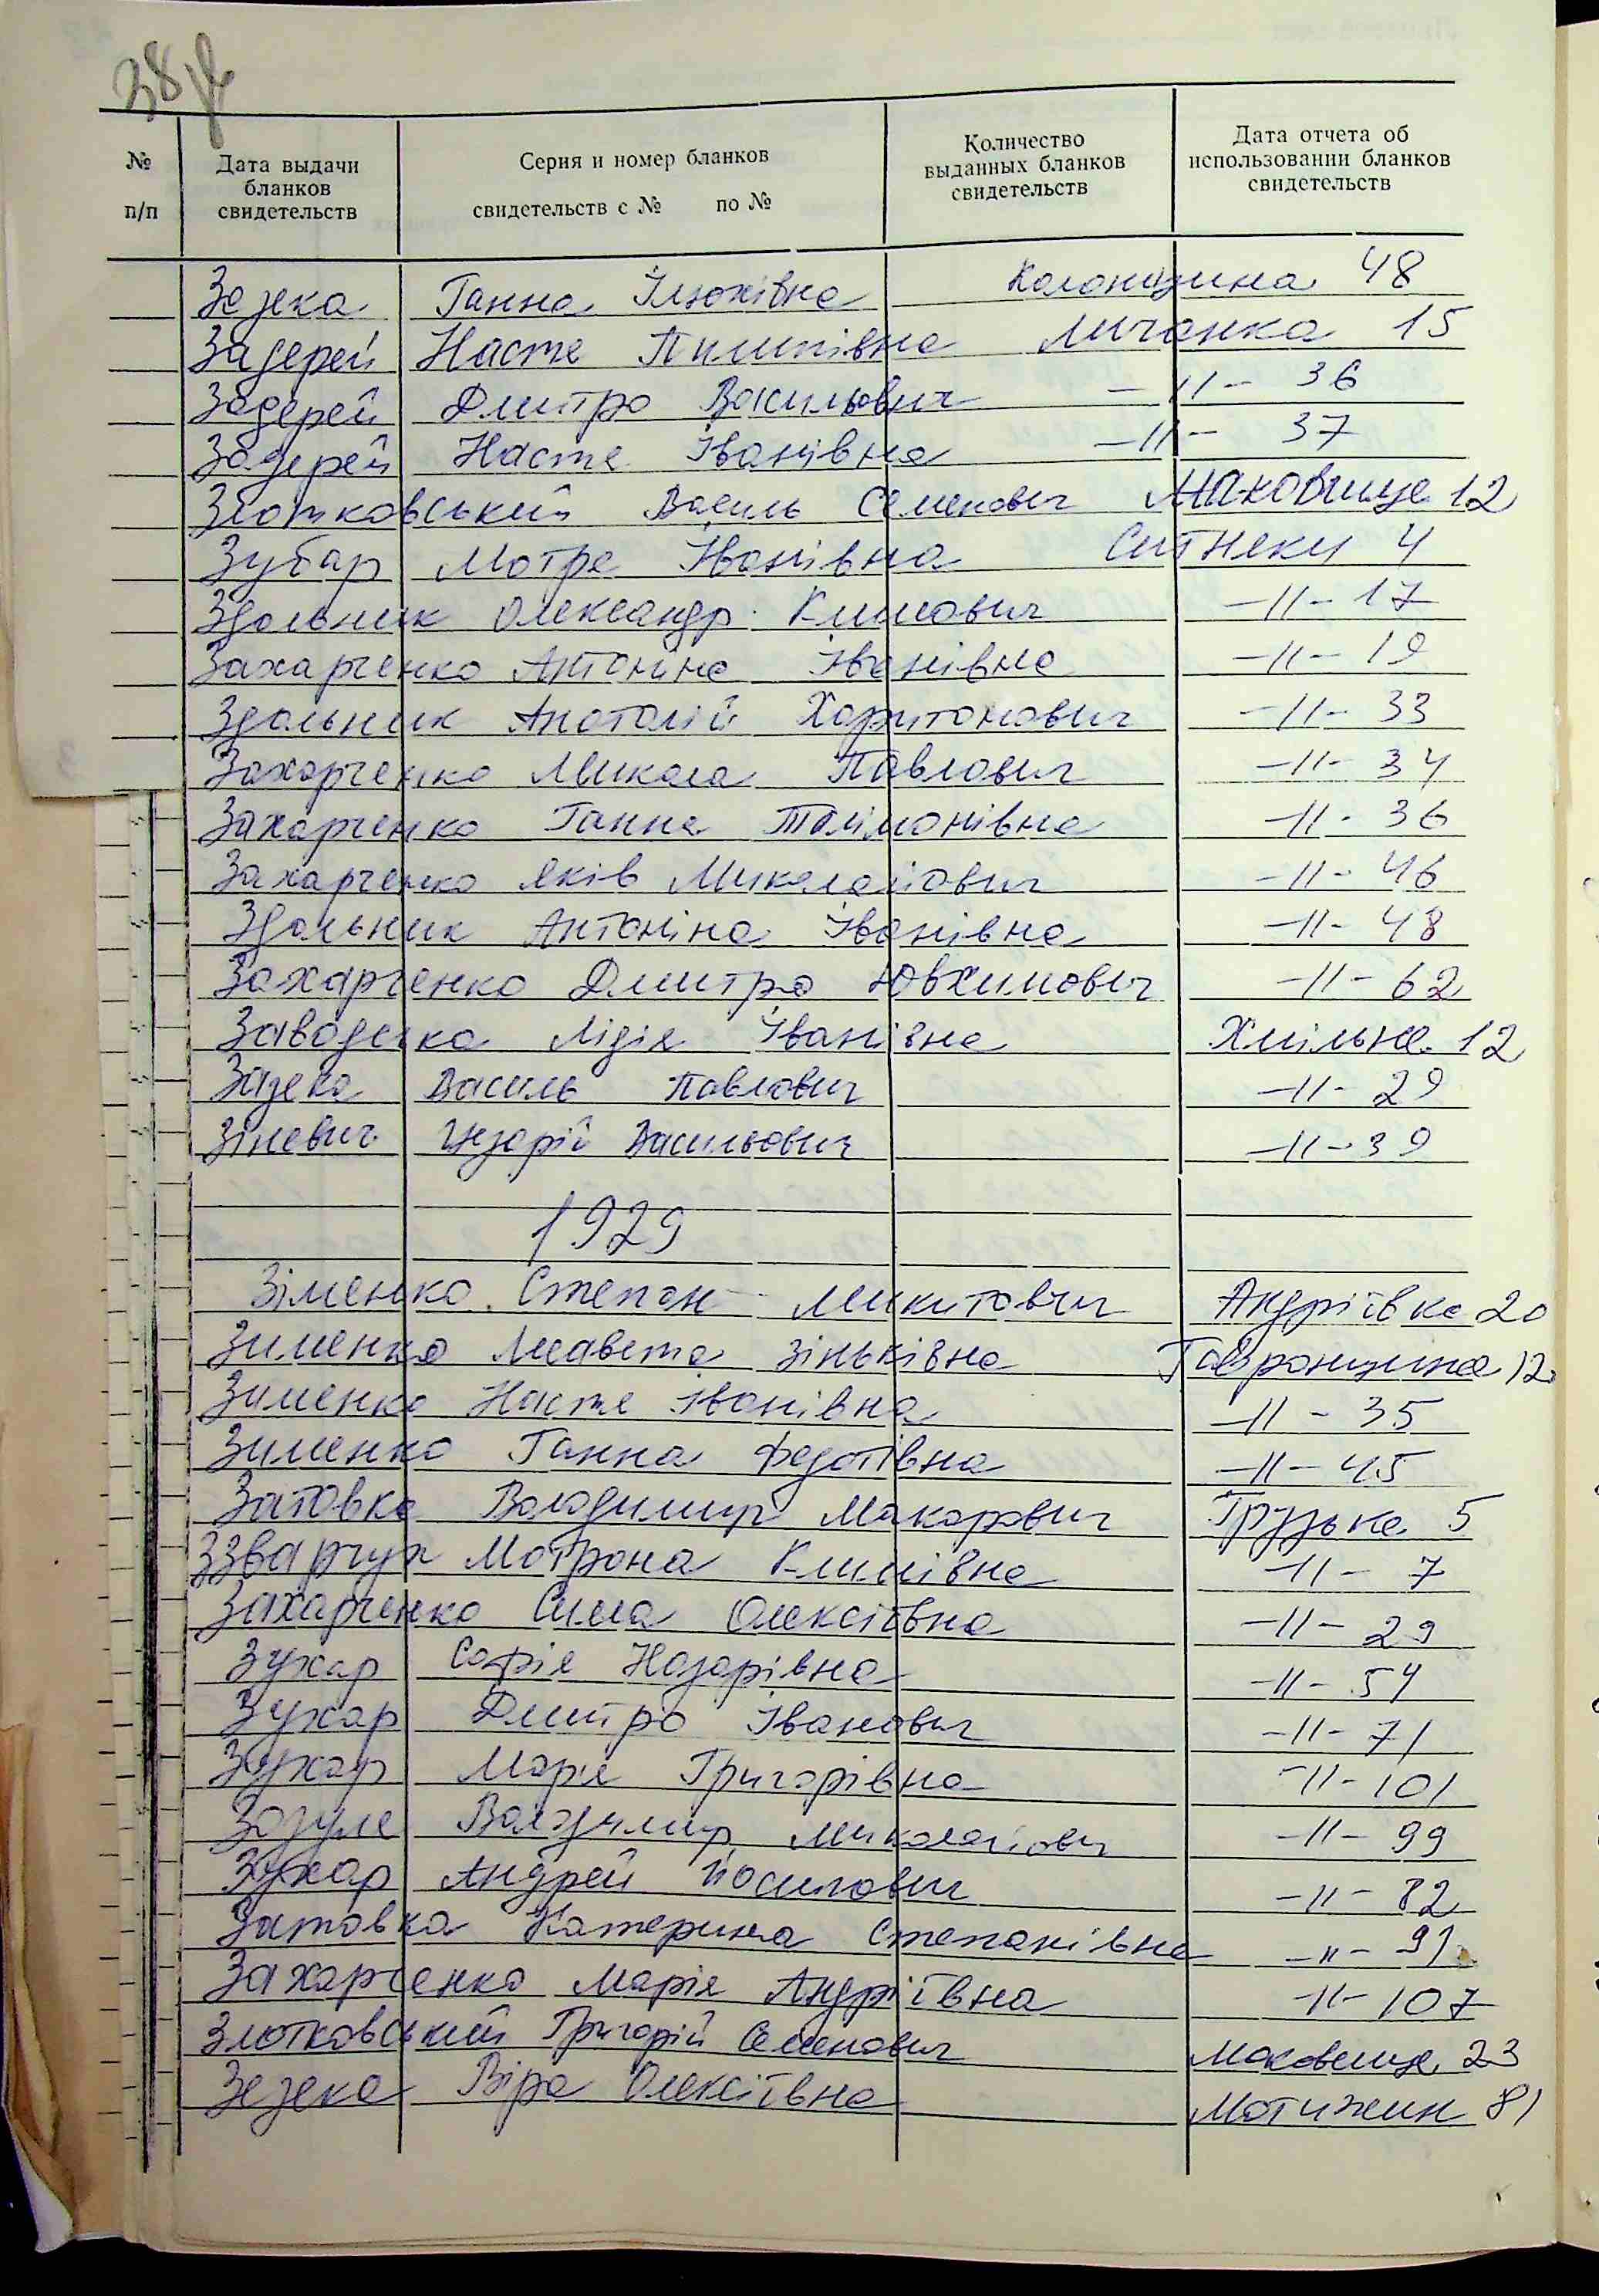 38
№ п/п
Дата выдачи бланков свидетельств
Серия и номер бланков свидетельств с № по №
Количество выданных бланков свидетельств
Дата отчета об использовании бланков свидетельств
Зезека Ганна Ілюхівна Колонщина 48
Задерей Настя Пилипівна Личанка 15
Задерей Дмитро Васильович -II- 36
Задерей Настя Іванівна -II- 37
Злотковський Василь Семенович Маковище 12
Зубар Мотря Іванівна Ситняки 4
Здольник Олександр Климович -II- 17
Захарченко Антоніна Іванівна -II- 19
Здольник Анатолій Харитонович -II- 33
Захарченко Микола Павлович -II- 34
Захарченко Ганна Талімонівна -II- 36
Захарченко Яків Миколайович -II- 46
Здольник Антоніна Іванівна -II- 48
Захарченко Дмитро Ювхимович -II- 62
Лідія Іванівна Хмільна 12
Василь Павлович -II- 29
Зіневич Василь‌ович -II- 39
1929
Зіменко Степан Микитович Андріївка 20
Зименко Лисавета Зіньківна Гавронщина 12
Зименко Настя Іванівна -II- 35
Зименко Ганна Федотівна -II- 45
Затовка Володимир Макарович Грузька 5
Ззварчук Мотрона Климівна -II- 7
Захарченко Сима Олексіївна -II- 29
Зухар Софія Назарівна -II- 54
Зухар Дмитро Іванович -II- 71
Зухар Марія Григорівна -II- 101
Зозуля Володимир Миколайович -II- 99
Зухар Андрей Йосипович -II- 82
Затовка Катерина Степанівна -II- 91
Захарченко Марія Андріївна -II- 107
Злотковський Григорій Семенович Маковище 23
Зезека Віра Олексіївна Мотижин 81